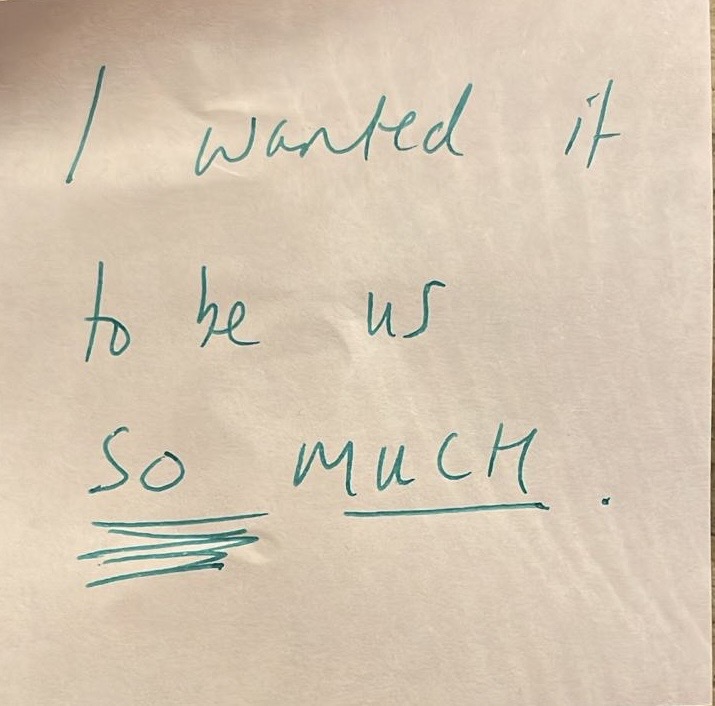 I wanted it
to be us
SO MUCH.